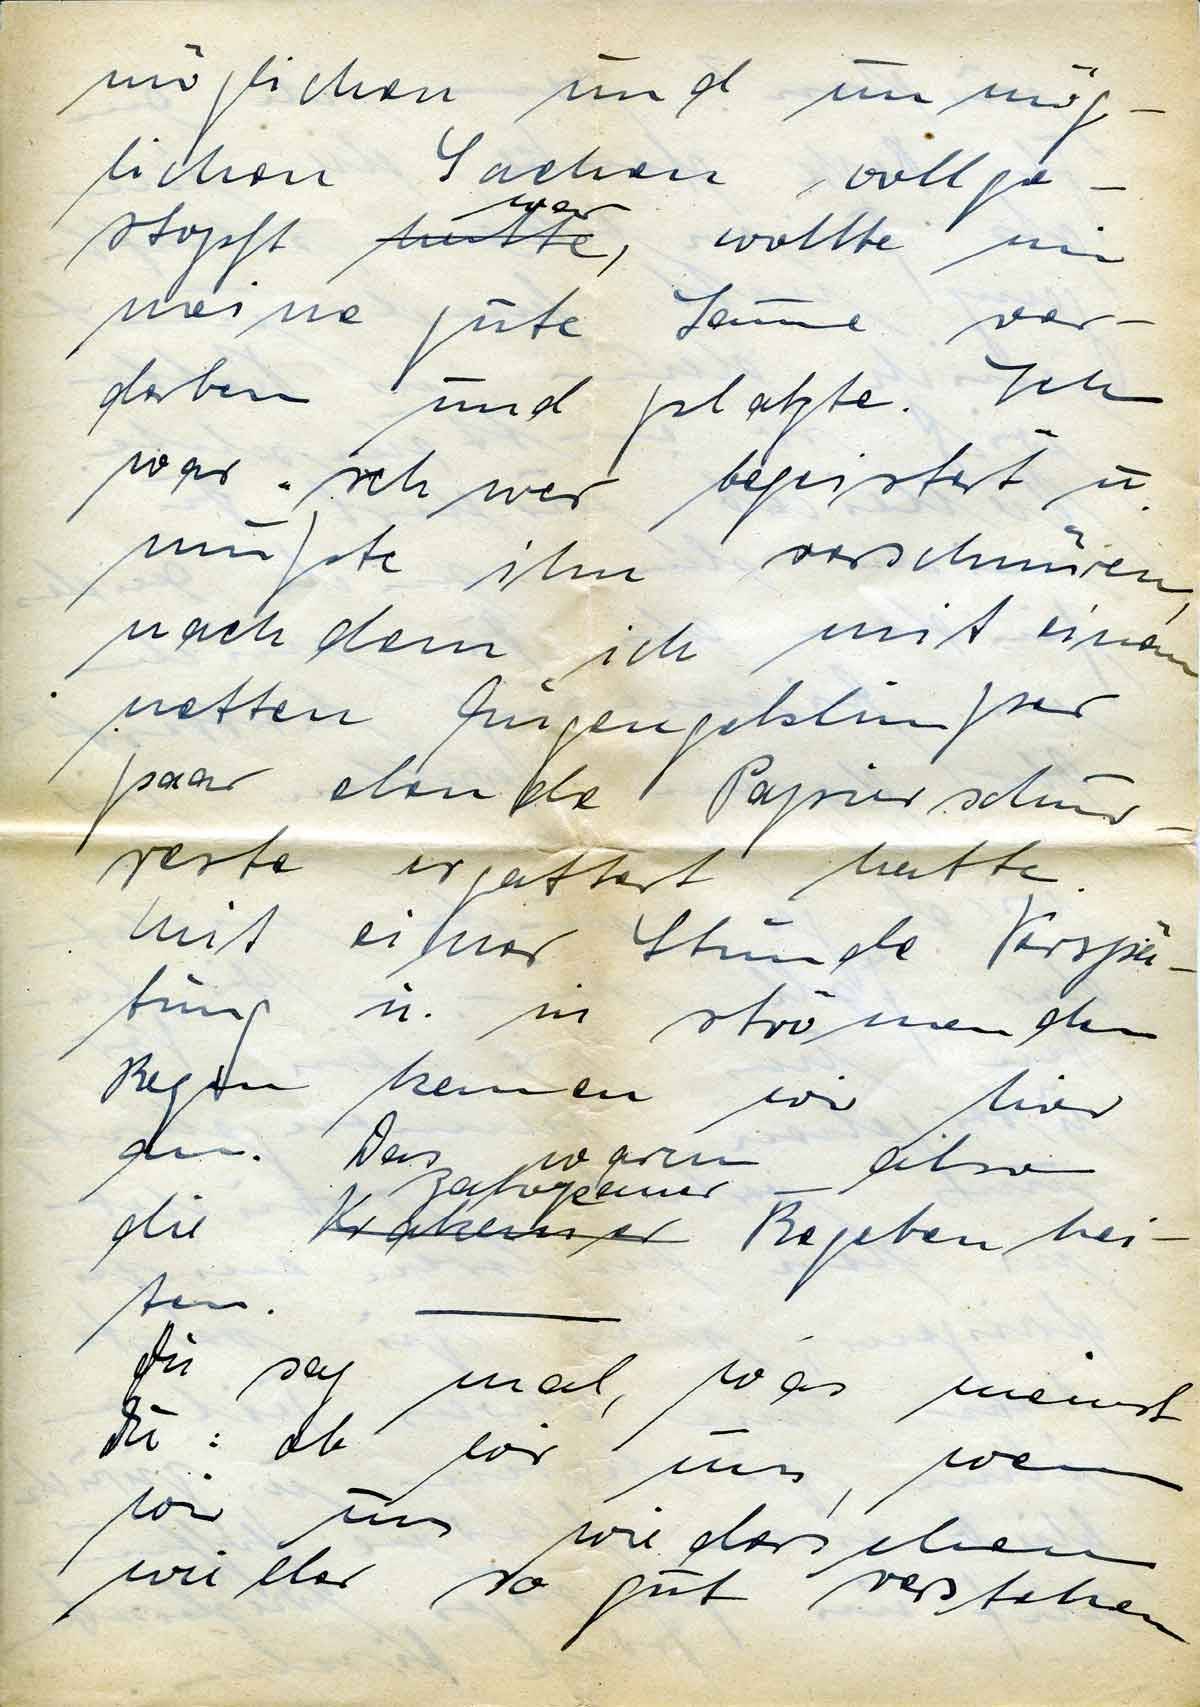 möglichen und unmög-
lichen Sachen vollge-
stopft hatte war, wollte mir
meine gute Laune ver-
derben und platzte. Ich
war schwer begeistert u.
mußte ihn verschnüren,
nachdem ich mit einem
netten Augengeklimper
paar elende Papierschnur-
reste ergattert hatte.
Mit einer Stunde Verspä-
tung u. in strömenden
Regen kamen wir hier
an. Das waren also
die Krakauer Zakopaner Begebenhei-
ten.
Du sag mal, was meinst
Du: ob wir uns, wenn
wir uns wiedersehen
wieder so gut verstehen